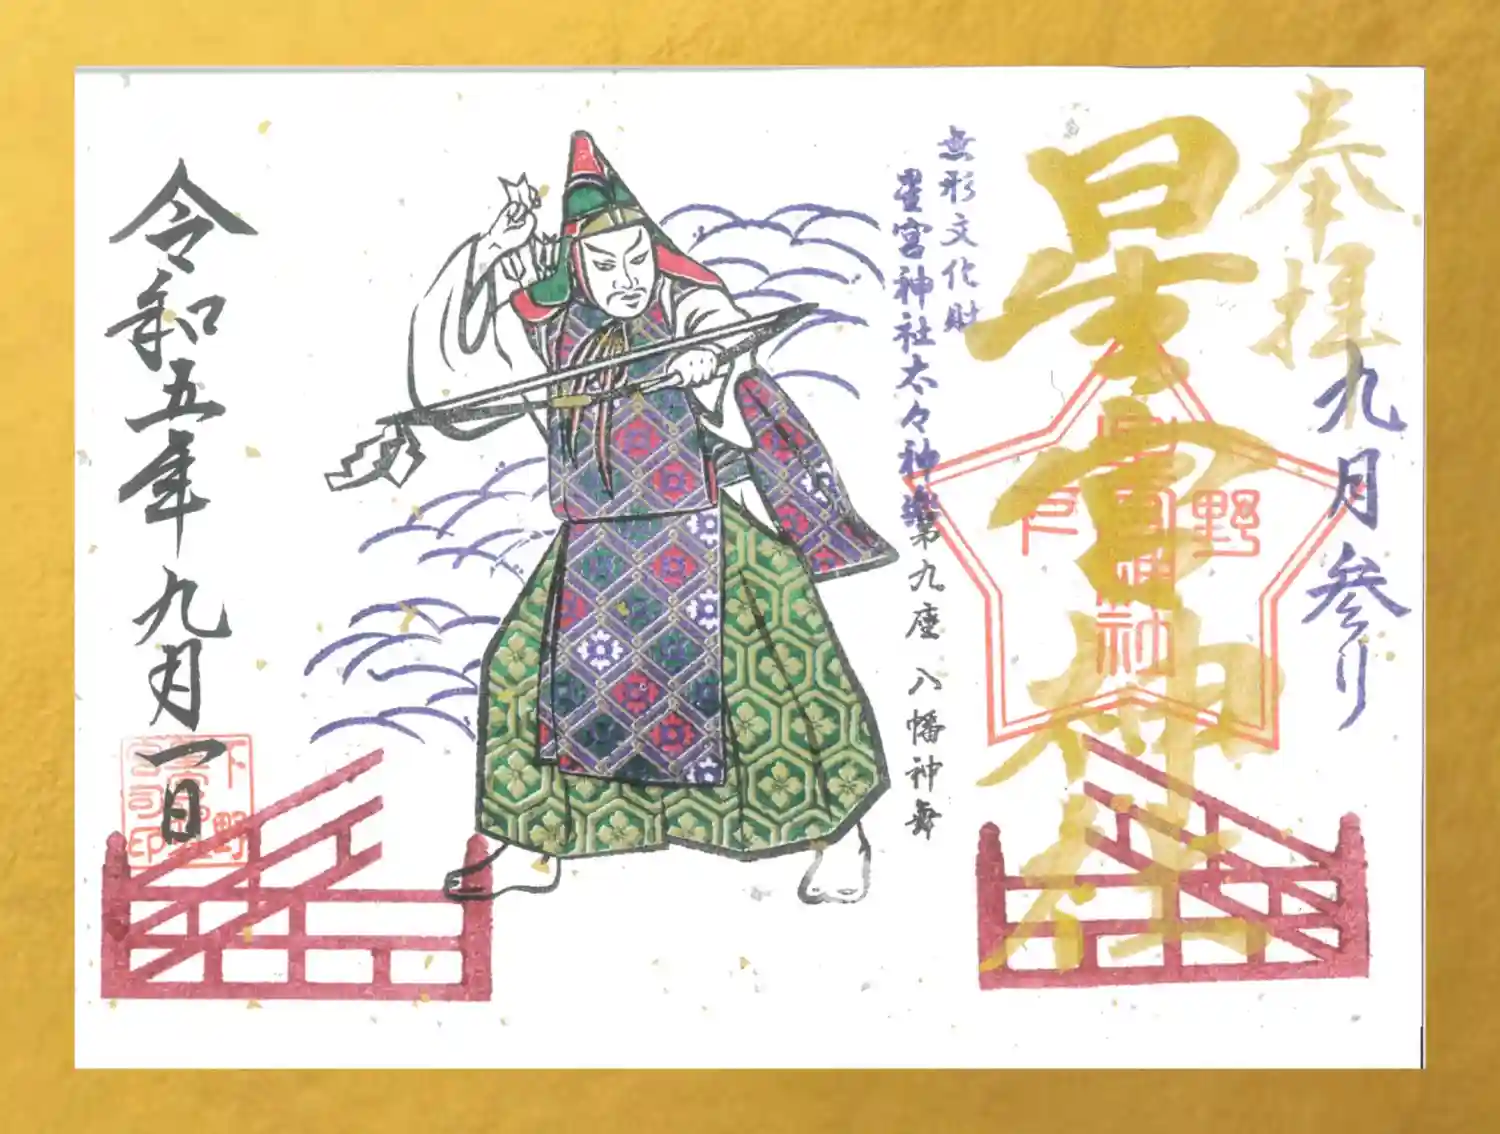 奉拝
九月参り
星宮神社
無形文化財
星宮神社太々神楽
第九座 八幡神舞
令和五年九月一日
下野
星宮神社